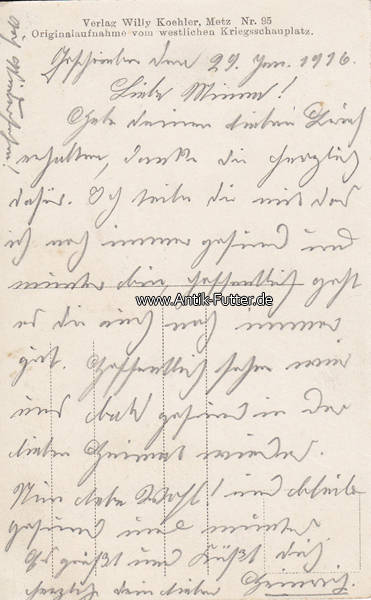 Verlag Willy Koehler, Metz Nr. 95
Originalaufnahme vom westlichen Kriegsschauplatz.
Auf Wiedersehen!
Geschrieben den 29. Jan. 1916.
Liebe Minna!
Habe deinen lieben Brief
erhalten, danke dir herzlich
dafür. Ich teile dir mit das
ich noch immer gesund und
munter bin, hoffentlich geht
www.Antik-Futter.de
es dir auch noch immer
gut. Hoffentlich sehn wir
uns bald gesund in der
lieben Heimat wieder.
Nun lebe Wohl! und bleibe
gesund und munter
Es grüßt und Küßt dich
herzlich dein lieber Heinrich.